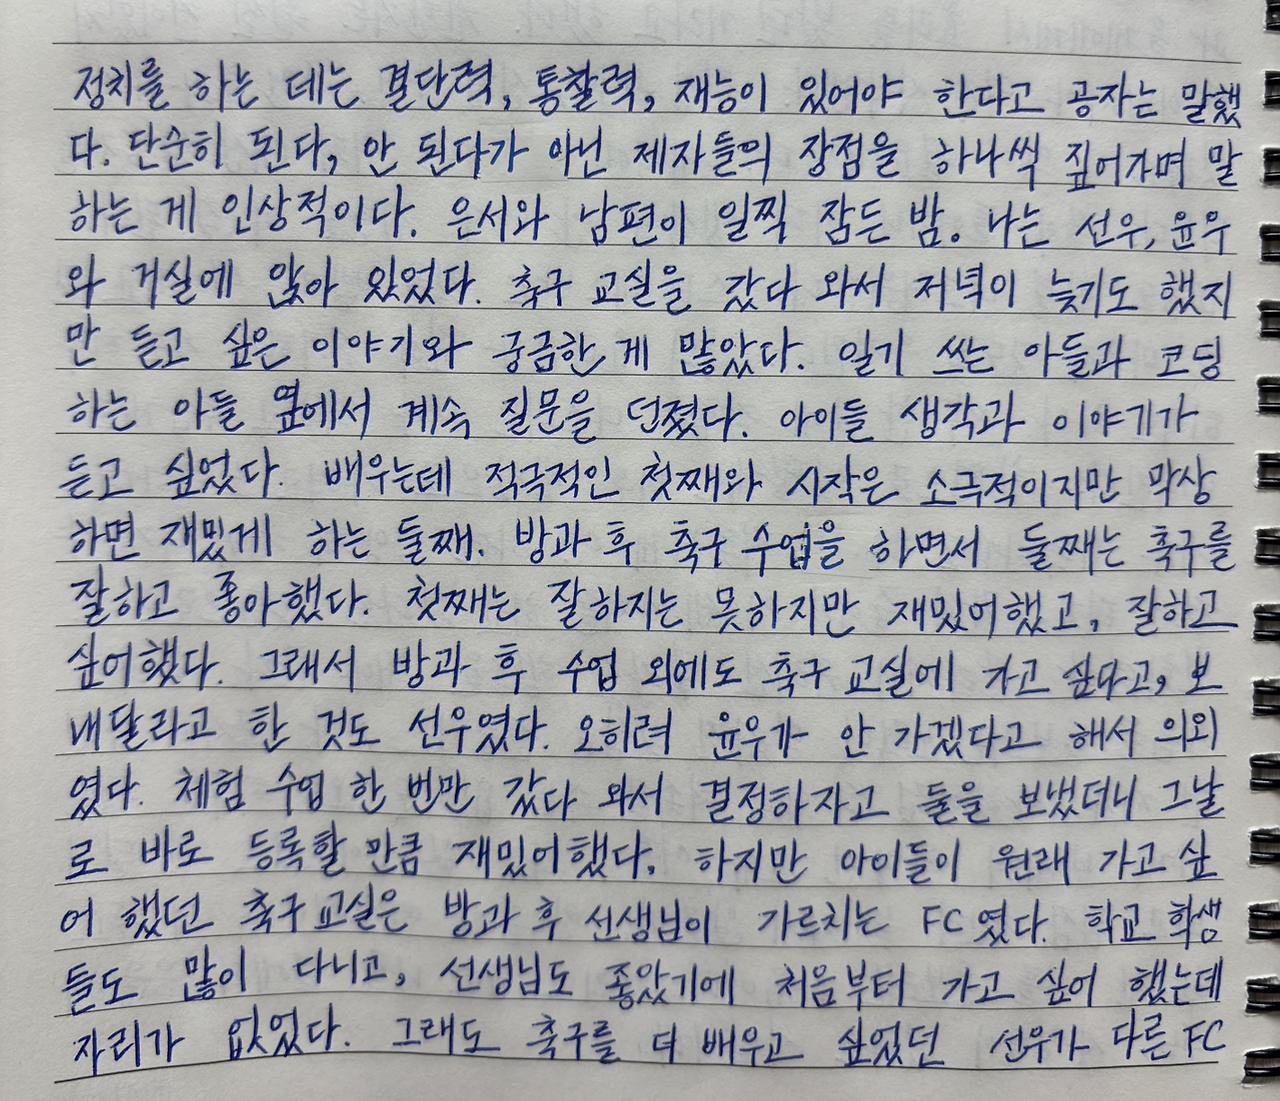 정치를 하는 데는 결단력, 통찰력, 재능이 있어야 한다고 공자는 말했
다. 단순히 된다, 안 된다가 아닌 제자들의 장점을 하나씩 짚어가며 말
하는 게 인상적이다. 은서와 남편이 일찍 잠든 밤. 나는 선우, 윤우
와 거실에 앉아 있었다. 축구 교실을 갔다 와서 저녁이 늦기도 했지
만 듣고 싶은 이야기와 궁금한 게 많았다. 일기 쓰는 아들과 코딩
하는 아들 옆에서 계속 질문을 던졌다. 아이들 생각과 이야기가
듣고 싶었다. 배우는데 적극적인 첫째와 시작은 소극적이지만 막상
하면 재밌게 하는 둘째. 방과 후 축구 수업을 하면서 둘째는 축구를
잘하고 좋아했다. 첫째는 잘하지는 못하지만 재밌어했고, 잘하고
싶어했다. 그래서 방과 후 수업 외에도 축구 교실에 가고 싶다고, 보
내달라고 한 것도 선우였다. 오히려 윤우가 안 가겠다고 해서 의외
였다. 체험 수업 한 번만 갔다 와서 결정하자고 둘을 보냈더니 그날
로 바로 등록할 만큼 재밌어했다. 하지만 아이들이 원래 가고 싶
어 했던 축구 교실은 방과 후 선생님이 가르치는 FC였다. 학교 학생
들도 많이 다니고, 선생님도 좋았기에 처음부터 가고 싶어 했는데
자리가 없었다. 그래도 축구를 더 배우고 싶었던 선우가 다른 FC